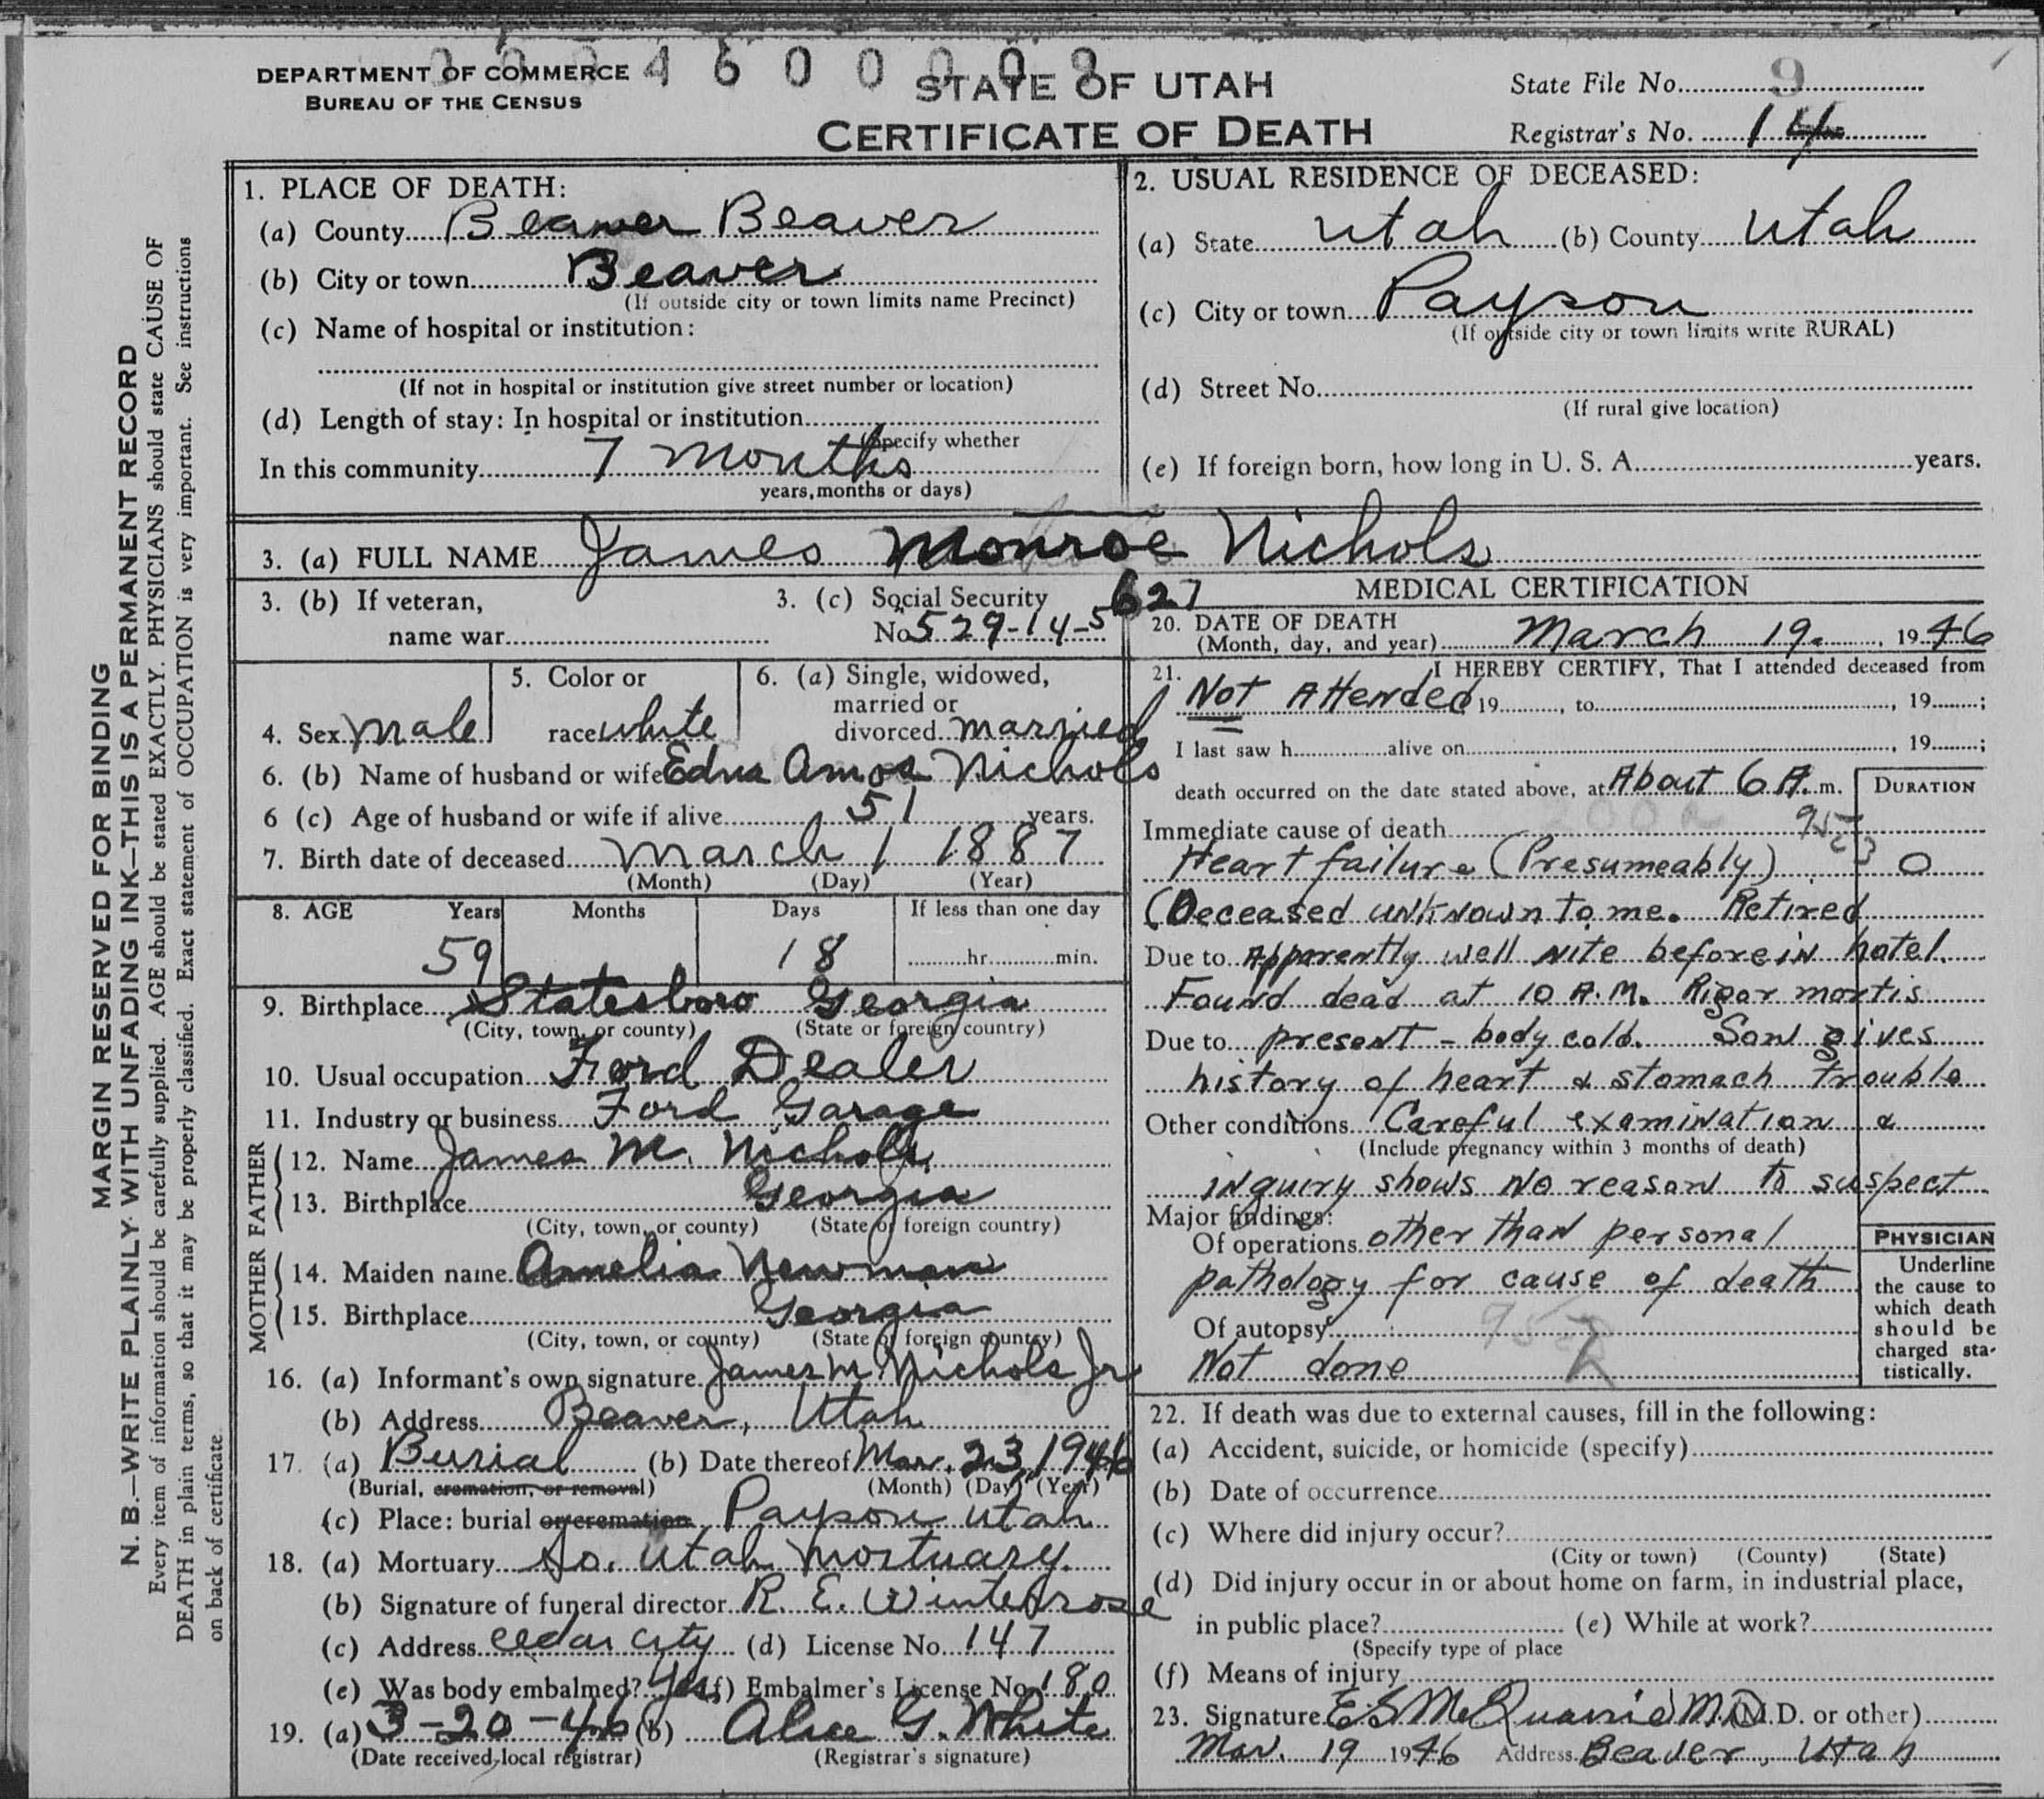 DEPARTMENT OF COMMERCE
BUREAU OF THE CENSUS
4 6 0 0 0 0 9
STATE OF UTAH
CERTIFICATE OF DEATH
State File No. 9
Registrar's No. 14
MARGIN RESERVED FOR BINDING
N. B.—WRITE PLAINLY WITH UNFADING INK—THIS IS A PERMANENT RECORD
Every item of information should be carefully supplied. AGE should be stated EXACTLY. PHYSICIANS should state CAUSE OF
DEATH in plain terms, so that it may be properly classified. Exact statement of OCCUPATION is very important. See instructions
on back of certificate.
1. PLACE OF DEATH:
(a) County Beaver Beaver
(b) City or town Beaver
(If outside city or town limits name Precinct)
(c) Name of hospital or institution:
(If not in hospital or institution give street number or location)
(d) Length of stay: In hospital or institution
(Specify whether
In this community 7 months
years, months or days)
2. USUAL RESIDENCE OF DECEASED:
(a) State Utah (b) County Utah
(c) City or town Payson
(If outside city or town limits write RURAL)
(d) Street No.
(If rural give location)
(e) If foreign born, how long in U. S. A. years.
3. (a) FULL NAME James Monroe Nichols
3. (b) If veteran,
name war
3. (c) Social Security
No 529-14-5627
4. Sex male
5. Color or
race white
6. (a) Single, widowed,
married or
divorced married
6. (b) Name of husband or wife Edna Amos Nichols
6 (c) Age of husband or wife if alive 51 years.
7. Birth date of deceased March 1 1887
(Month) (Day) (Year)
8. AGE Years Months Days If less than one day
59 18 hr. min.
9. Birthplace Statesboro Georgia
(City, town, or county) (State or foreign country)
10. Usual occupation Ford Dealer
11. Industry or business Ford Garage
FATHER
12. Name James M. Nichols
13. Birthplace Georgia
(City, town, or county) (State or foreign country)
MOTHER
14. Maiden name Amelia Newman
15. Birthplace Georgia
(City, town, or county) (State or foreign country)
16. (a) Informant's own signature James M Nichols Jr
(b) Address Beaver, Utah
17. (a) Burial (b) Date thereof Mar. 23, 1946
(Burial, cremation, or removal) (Month) (Day) (Year)
(c) Place: burial or cremation Payson Utah
18. (a) Mortuary So. Utah Mortuary.
(b) Signature of funeral director R. E. Winterrose
(c) Address Cedar City (d) License No. 147
(e) Was body embalmed? Yes (f) Embalmer's License No. 180
19. (a) 3-20-46 (b) Alice G. White
(Date received local registrar) (Registrar's signature)
MEDICAL CERTIFICATION
20. DATE OF DEATH
(Month, day, and year) March 19. , 1946
21. I HEREBY CERTIFY, That I attended deceased from
Not Attended 19 , to , 19 ;
I last saw h alive on , 19 ;
death occurred on the date stated above, at About 6 A. m.
DURATION
Immediate cause of death
Heart failure (Presumeably) 0
(Deceased unknown to me. Retired
Due to Apparently well nite before in hotel.
Found dead at 10 A.M. Rigor mortis
Due to present - body cold. Son gives
history of heart & stomach trouble
Other conditions Careful examination &
(Include pregnancy within 3 months of death)
inquiry shows no reason to suspect
Major findings:
Of operations other than personal
pathology for cause of death
Of autopsy
Not done
PHYSICIAN
Underline
the cause to
which death
should be
charged sta-
tistically.
22. If death was due to external causes, fill in the following:
(a) Accident, suicide, or homicide (specify)
(b) Date of occurrence
(c) Where did injury occur?
(City or town) (County) (State)
(d) Did injury occur in or about home on farm, in industrial place,
in public place? (e) While at work?
(Specify type of place
(f) Means of injury
23. Signature E S McQuarrie M.D. (M.D. or other)
Mar. 19 1946 Address Beaver, Utah